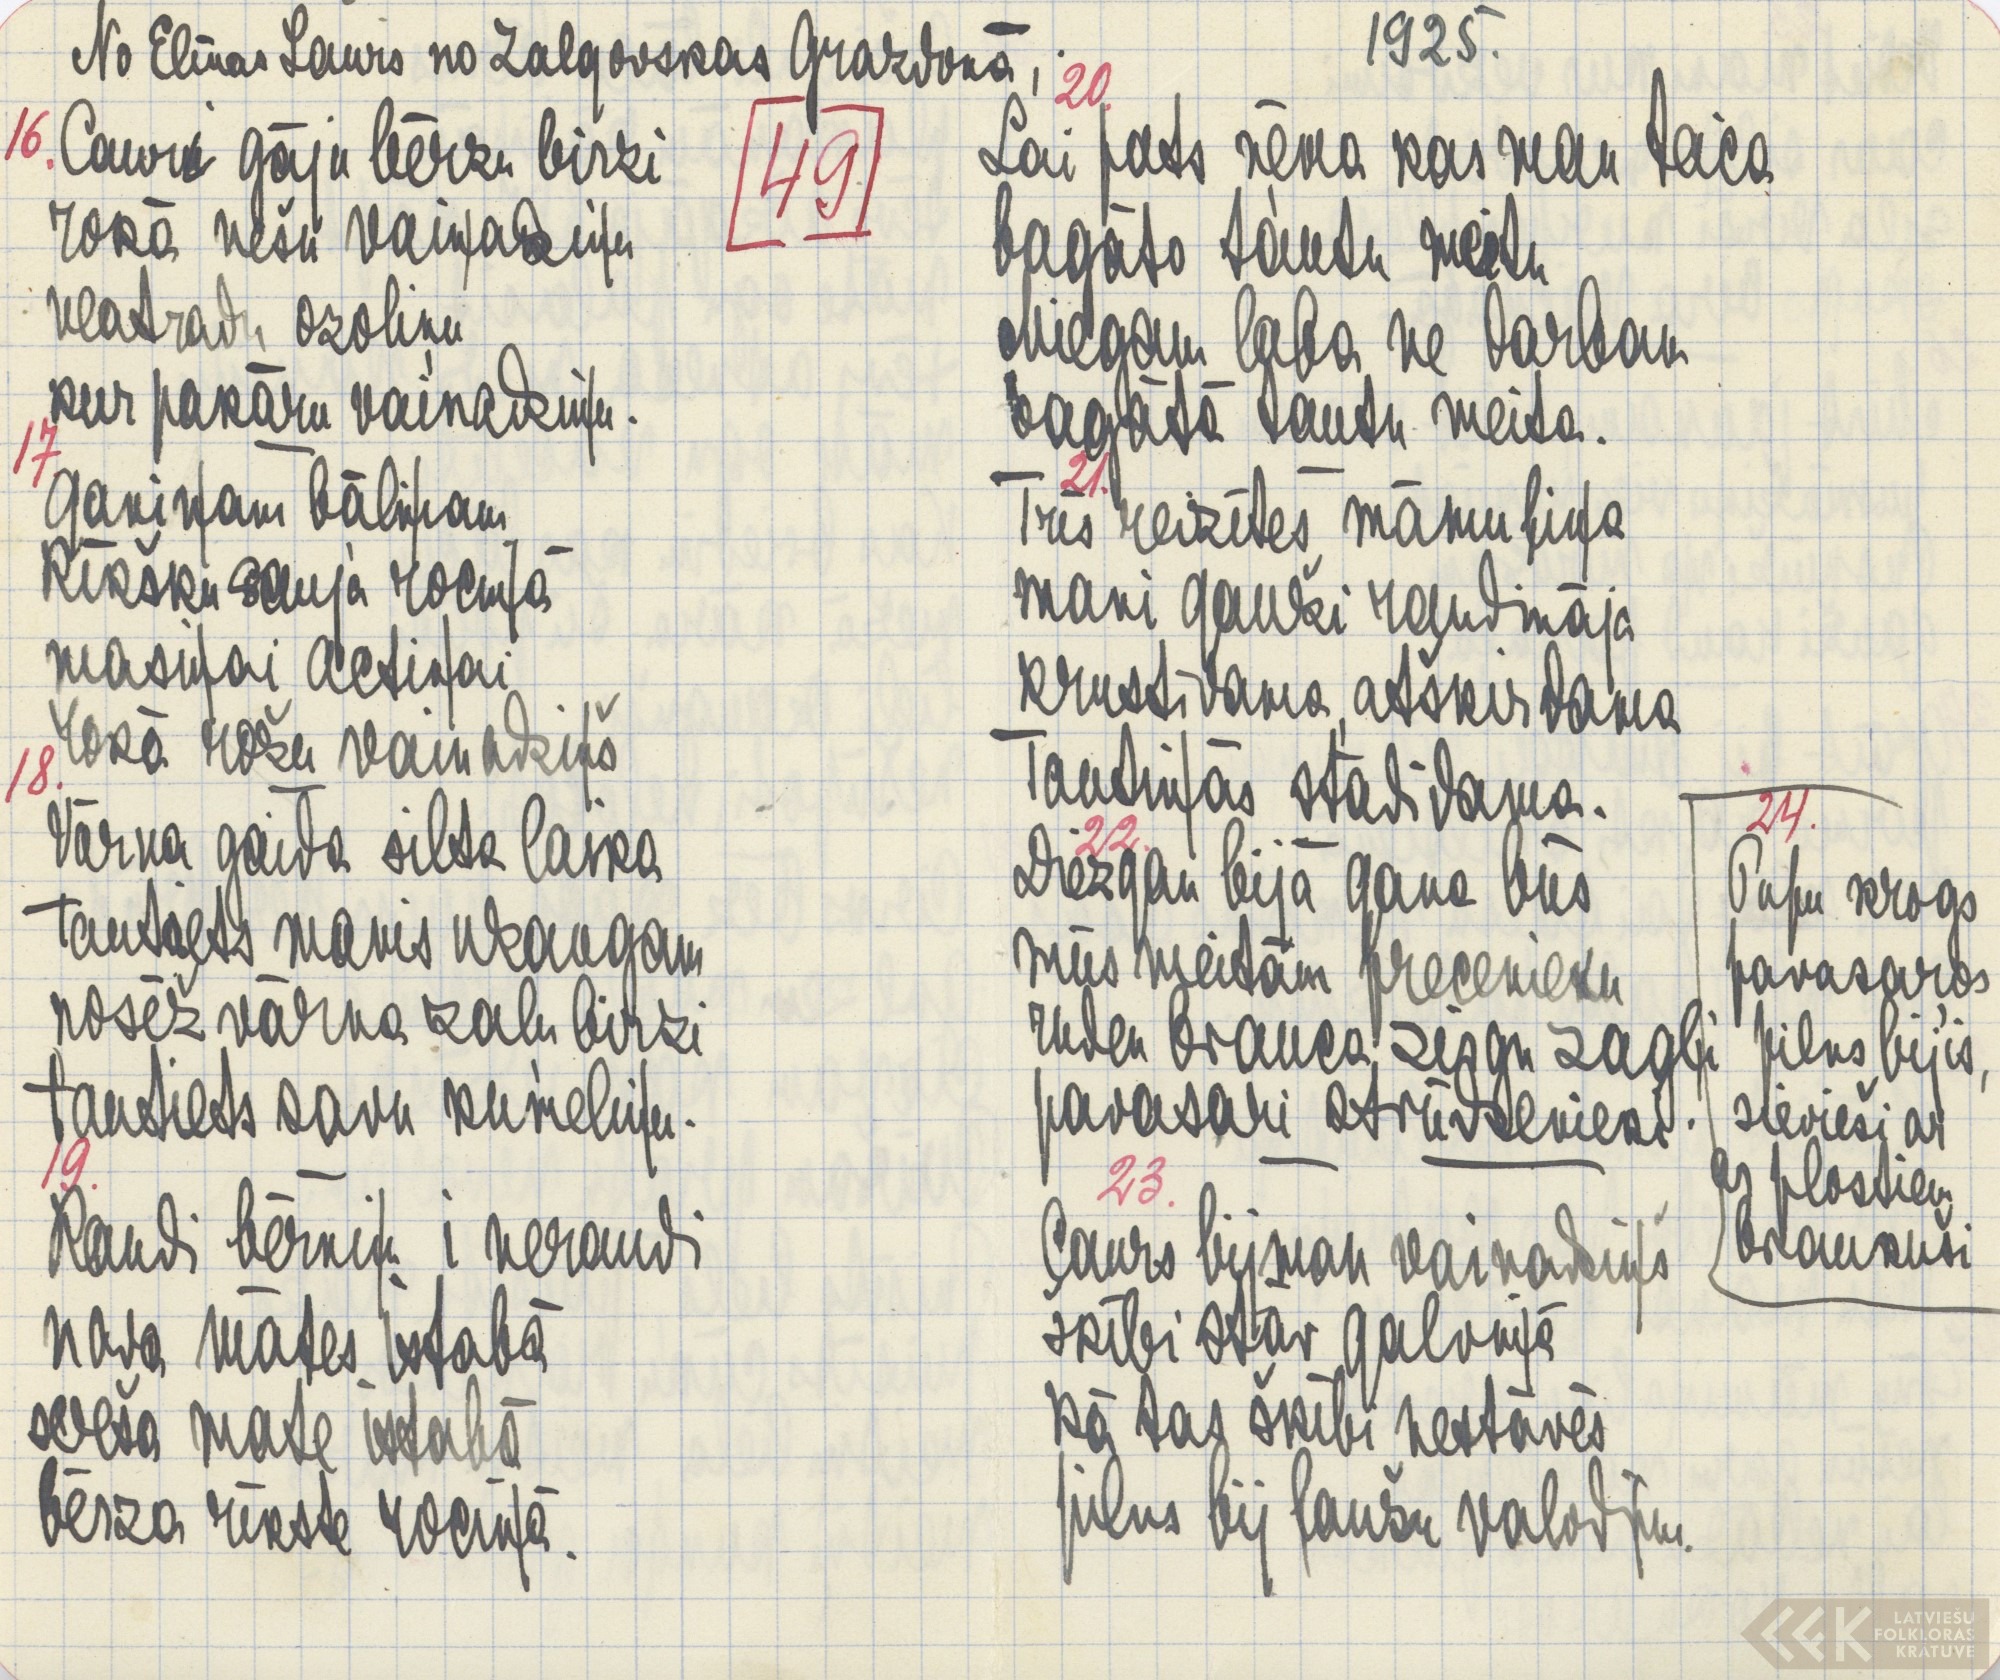 No Elīnas Laurs no Zalgovskas Grazdonā, 1925.
[49]
16. Cauri gāju bērzu birzi
rokā nešu vaiņadziņu
neatradu ozoliņu
kur pakāru vaiņadziņu.
17
Ganiņam bāliņam
Rīkšku sauja rociņā
masiņai actiņai
rokā rožu vainadziņš
18.
Vārna gaida silta laika
tautiets manis uzaugam
nosēž vārna zaļu birzi
tautiets savu kumeliņu.
19.
Raudi bērniņ i neraudi
nava mātes istabā
sveša māte istabā
bērza rīkste rociņā.
20.
Lai pats ņēma kas man teica
bagāto tautu meitu
Miegam laba ne darbam
bagātā tautu meita.
21.
Trīs reizītes māmuliņa
mani gauži raudināja
krustīdama, atšķirdama
Tautiņās stādīdama.
22.
Diezgan bijā gana būs
mūs meitām precenieku
ruden brauca zirgu zagļi
pavasari strūdzenieki.
23.
Caurs bij man vainadziņš
šķībi stāv galviņā
kā tas šķībi nestāvēs
pilns bij ļaužu valodiņu.
24.
Pupu krogs
pavasaros
pilns bijis,
sievieši ar
ar plostiem
braukuši
LATVIEŠU
FOLKLORAS
KRĀTUVE